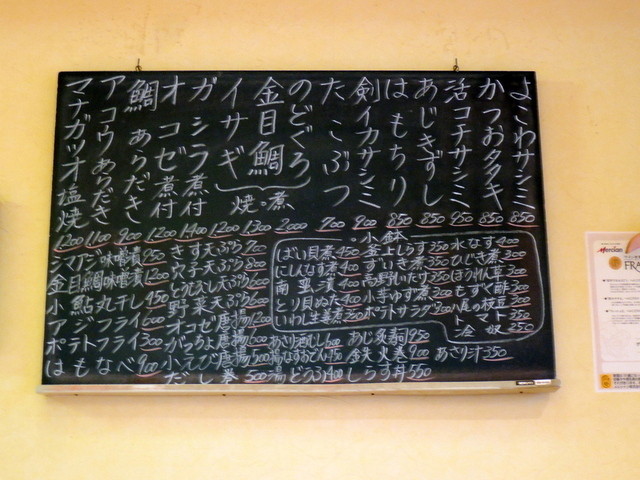 よこわサシミ 850
かつおタタキ 850
活コチサシミ 950
あじきずし 850
はもちり 850
剣イカサシミ 900
たこぶつ 700
のどぐろ 2000
金目鯛 1300
イサギ 1200
焼・煮
ガシラ煮付 1400
オコゼ煮付 1200
鯛あらだき 900
アコウあらだき 1100
マナガツオ塩焼 1200
シマアジ味噌漬 950
金目鯛味噌漬 1200
小鮎丸干し 450
アジフライ 600
ポテトフライ 300
はもなべ
きす天ぷら 700
穴子天ぷら 800
とうふ天ぷら 600
野菜天ぷら 600
オコゼ唐揚 1200
小えび唐揚 500
だし巻 500
小鉢
ばい貝煮 450
にしんなす煮 400
南蛮漬 400
とり貝ぬた 400
いわし生姜煮 400
釜上しらす 350
ずいき煮 350
高野しいたけ 350
小芋ゆず煮 300
ポテトサラダ 400
水なす 400
ひじき煮 300
ほうれん草 300
もずく酢 300
八尾の枝豆 300
トマト 350
冷奴 350
あさり酒むし 500
湯どうふ 400
あじ炙寿司 950
鉄火巻 900
しらす丼 550
あさり汁 350
Mercian
FRA